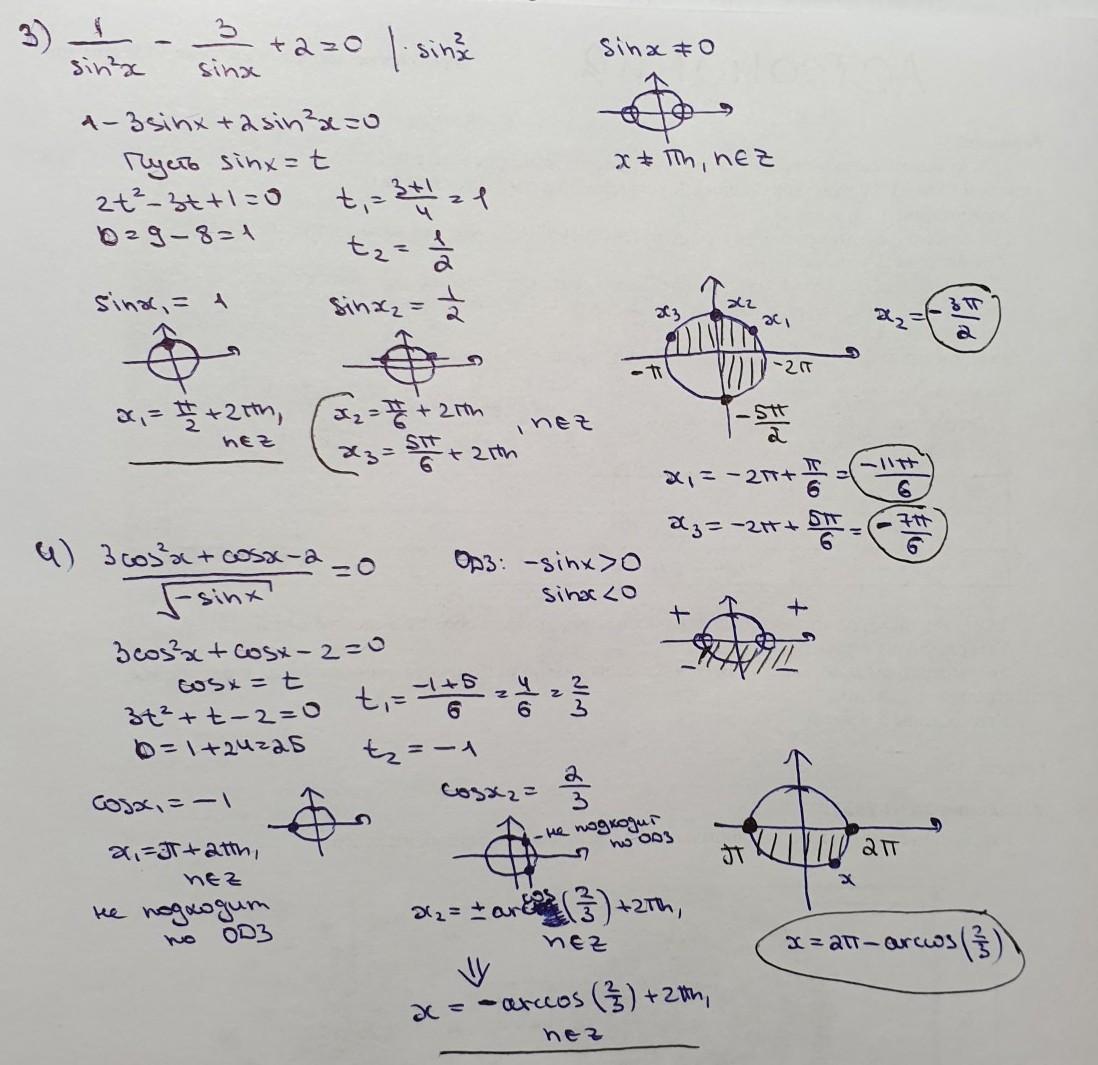 3) 1/sin²x - 3/sinx + 2 = 0 | · sin²x
sinx ≠ 0
1 - 3sinx + 2sin²x = 0
x ≠ πn, n∈Z
Пусть sinx = t
2t² - 3t + 1 = 0
t₁ = (3+1)/4 = 1
D = 9 - 8 = 1
t₂ = 1/2
sinx₁ = 1
sinx₂ = 1/2
x₁ = π/2 + 2πn,
n∈Z
x₂ = π/6 + 2πn
x₃ = 5π/6 + 2πn
, n∈Z
x₃
x₂
x₁
-π
-2π
-5π/2
x₂ = -3π/2
x₁ = -2π + π/6 = -11π/6
x₃ = -2π + 5π/6 = -7π/6
4) (3cos²x + cosx - 2)/√(-sinx) = 0
ОДЗ: -sinx > 0
sinx < 0
+ +
- -
3cos²x + cosx - 2 = 0
cosx = t
3t² + t - 2 = 0
D = 1 + 24 = 25
t₁ = (-1+5)/6 = 4/6 = 2/3
t₂ = -1
cosx₁ = -1
x₁ = π + 2πn,
n∈Z
не подходит
по ОДЗ
cosx₂ = 2/3
- не подходит
по ОДЗ
x₂ = ± arccos(2/3) + 2πn,
n∈Z
⇓
x = -arccos(2/3) + 2πn,
n∈Z
π
2π
x
x = 2π - arccos(2/3)